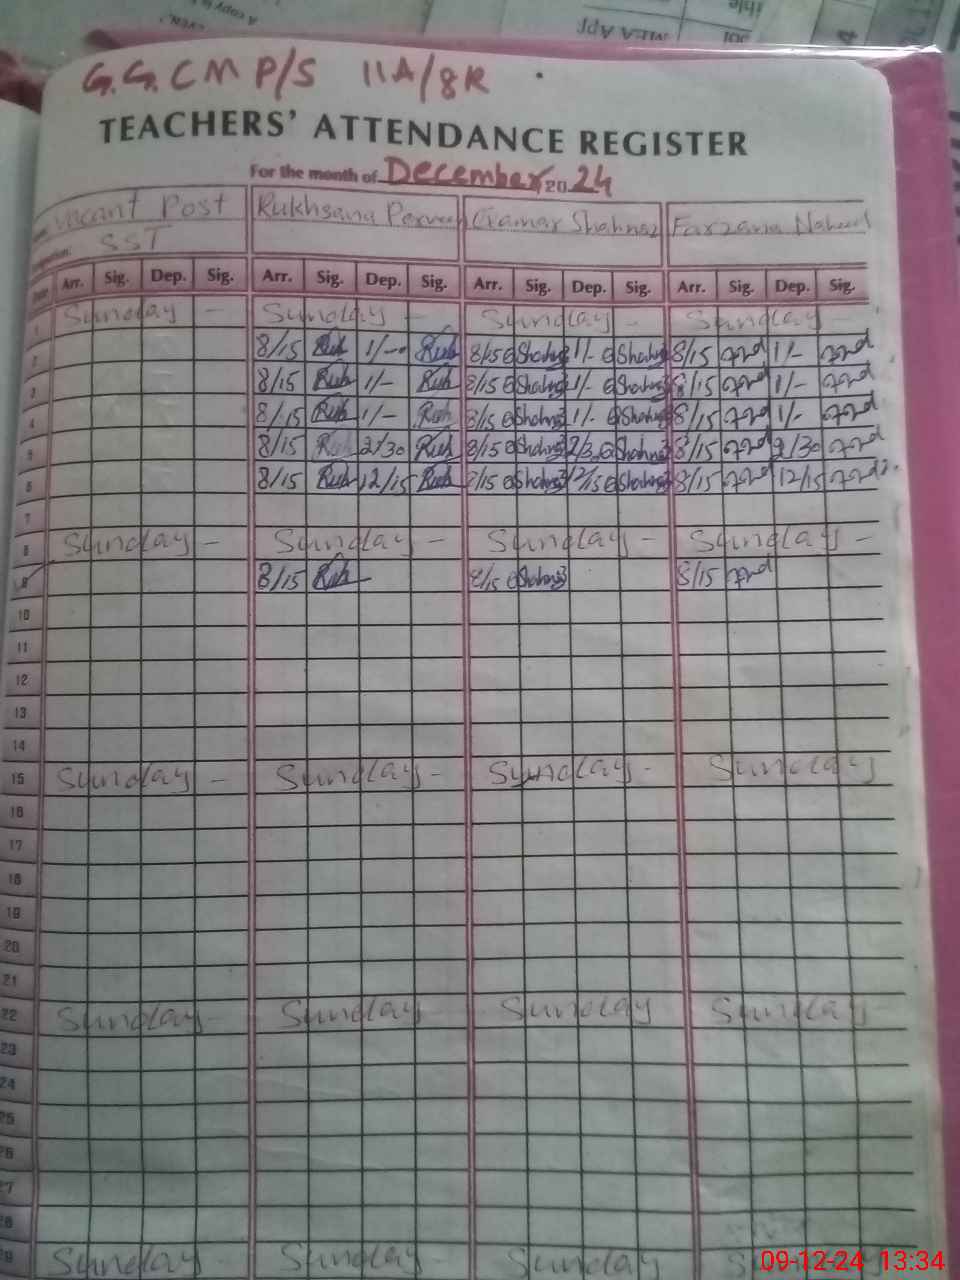 G.G.C M P/S 11A/8R
TEACHERS' ATTENDANCE REGISTER
For the month of December 20 24
Vacant Post Rukhsana Perveen Qamar Shahnaz Farzana Naheed
SST
Arr. Sig. Dep. Sig. Arr. Sig. Dep. Sig. Arr. Sig. Dep. Sig. Arr. Sig. Dep. Sig.
1 Sunday - Sunday - Sunday - Sunday -
2 8/15 Ruh 1/- Ruh 8/15 Shahnaz 1/- Shahnaz 8/15 1/-
3 8/15 Ruh 1/- Ruh 8/15 Shahnaz 1/- Shahnaz 8/15 1/-
4 8/15 Ruh 1/- Ruh 8/15 Shahnaz 1/- Shahnaz 8/15 1/-
5 8/15 Ruh 2/30 Ruh 8/15 Shahnaz 2/30 Shahnaz 8/15 2/30
6 8/15 Ruh 12/15 Ruh 8/15 Shahnaz 12/15 Shahnaz 8/15 12/15
7
8 Sunday - Sunday - Sunday - Sunday -
9 8/15 Ruh 8/15 Shahnaz 8/15
10
11
12
13
14
15 Sunday - Sunday - Sunday - Sunday
16
17
18
19
20
21
22 Sunday - Sunday Sunday Sunday -
23
24
25
26
27
28
29 Sunday Sunday Sunday
09-12-24 13:34